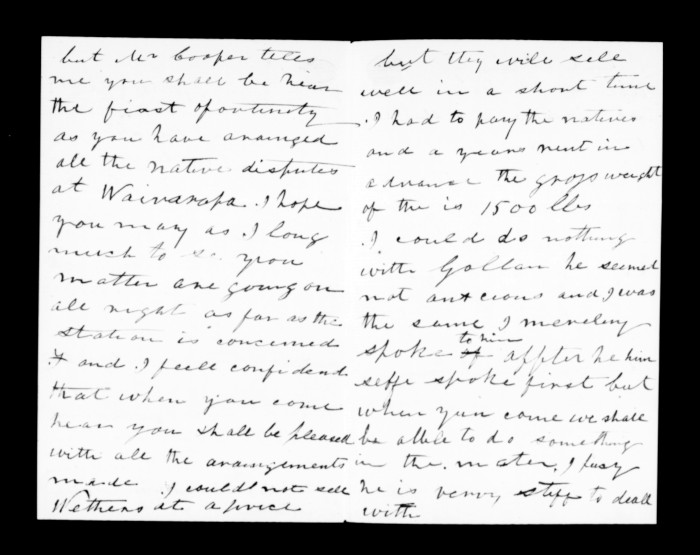 but Mr Cooper tells
me you shall be hear
the fiast oportunity
as you have arainged
all the native disputes
at Wairarapa. I hope
you may as I long
much to se you
matter are going on
all right as far as the
station is concerned
& and I feele confident
that when you come
hear you shall be pleased
with all the araingements
made. I could not sell
Wethers at a price
but they will sell
well in a short time
. I had to pay the natives
and a years rent in
advance the gross weight
of the is 1500 lbs
. I could do nothing
with Gollan he seemed
not antcious and I was
the same I mereley
spoke to him affter he him
selfe spoke first but
when you come we shall
be able to do something
in the mater, I
he is verry stiff to deall
with